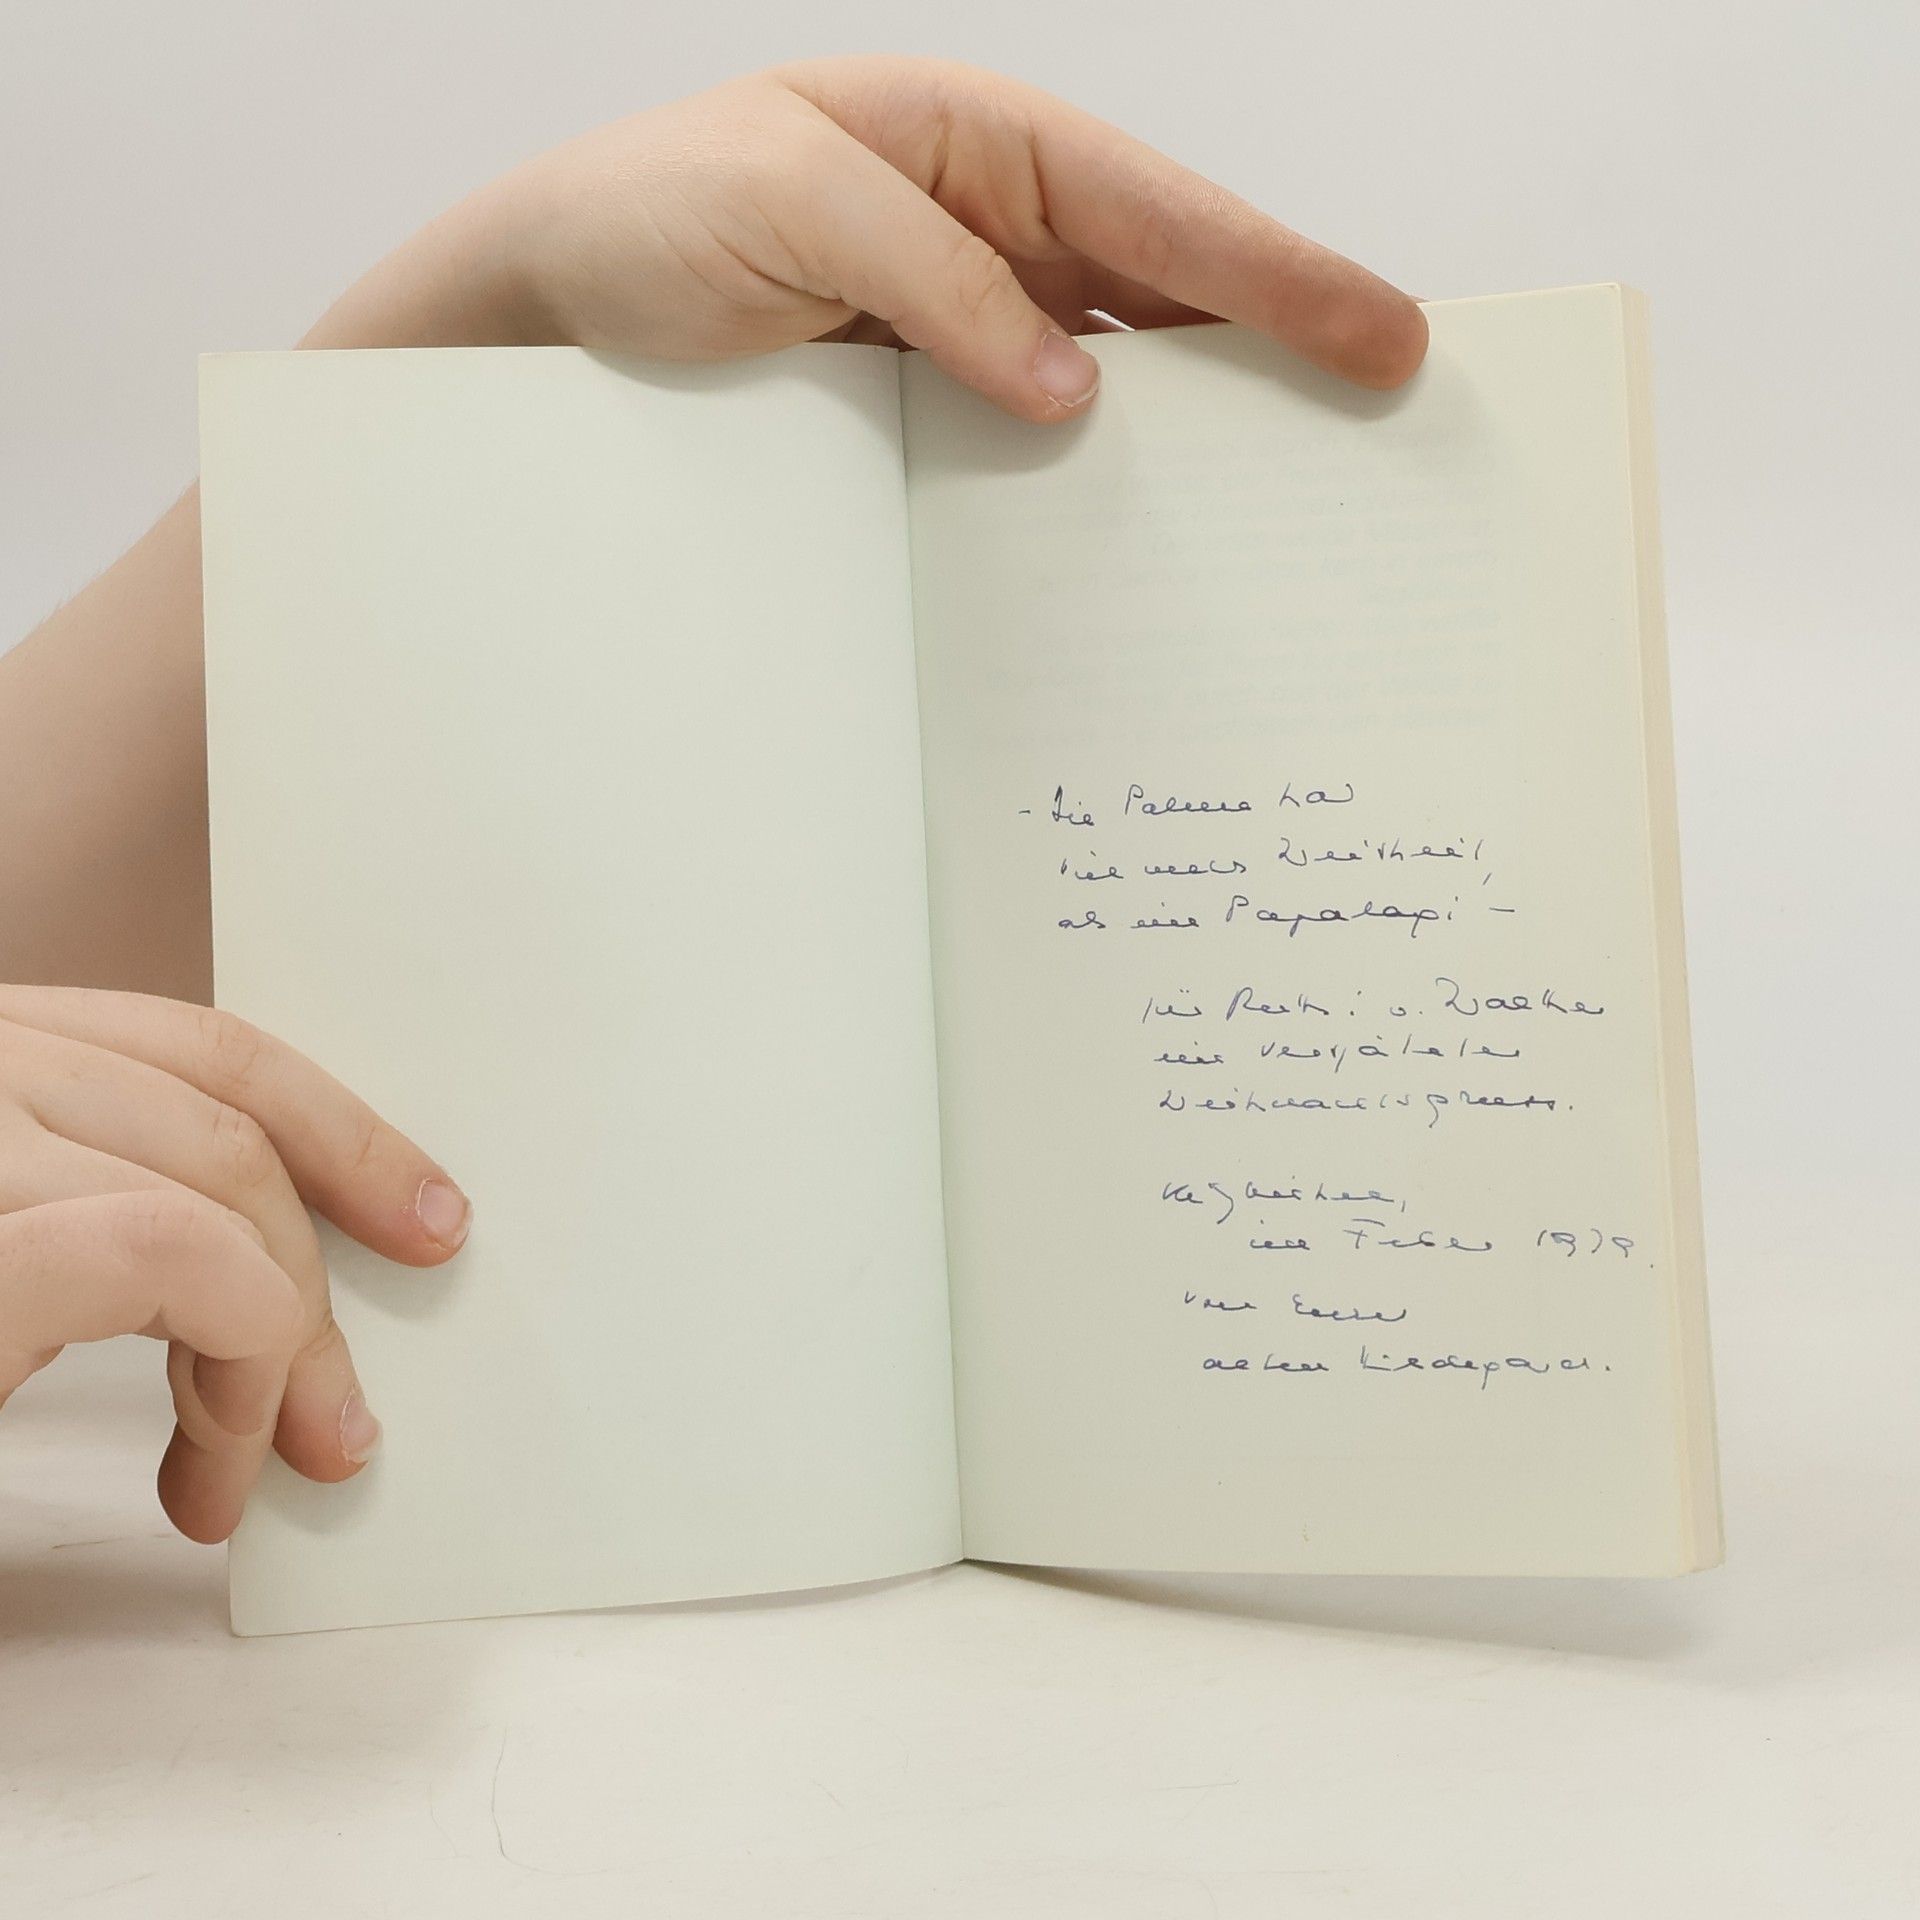 - Die Palme hat
viel mehr Weisheit,
als ein Papalagi -
für Ruth: u. Walter
ein verspäteter
Weihnachtsgruss.
im Feber 1979.
von Eurer
alten Hildegard.